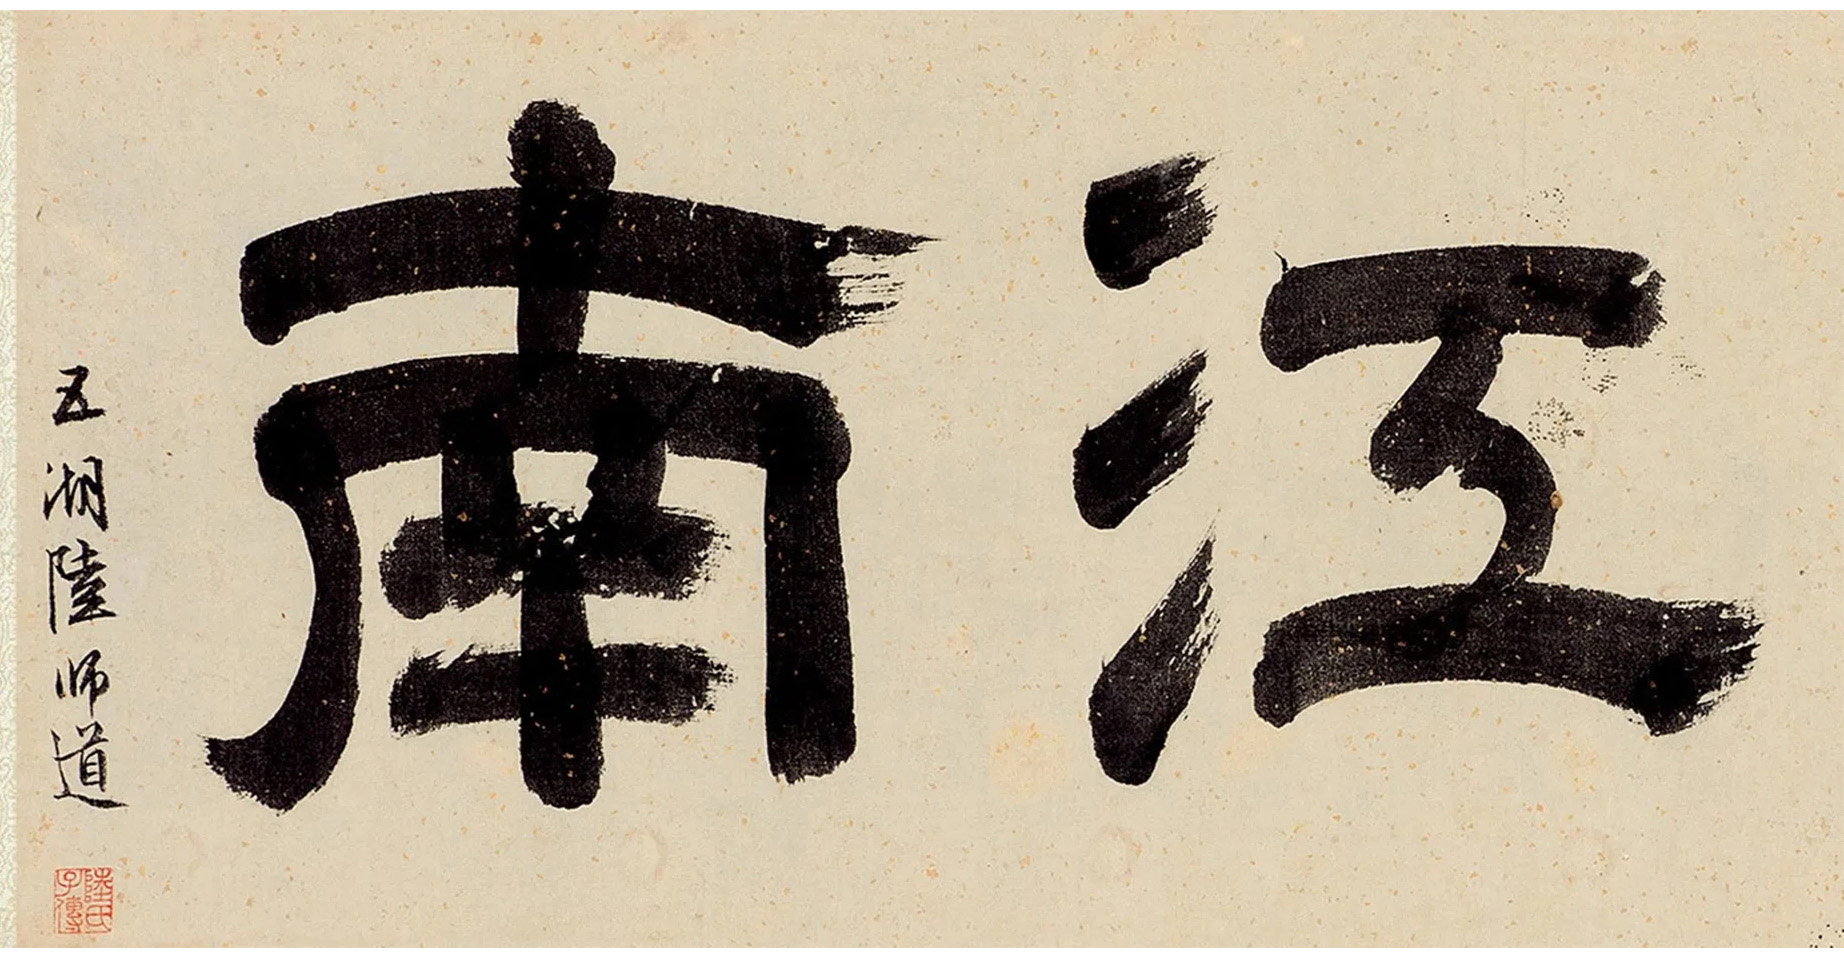 江南
五湖陸师道
陸氏子傳